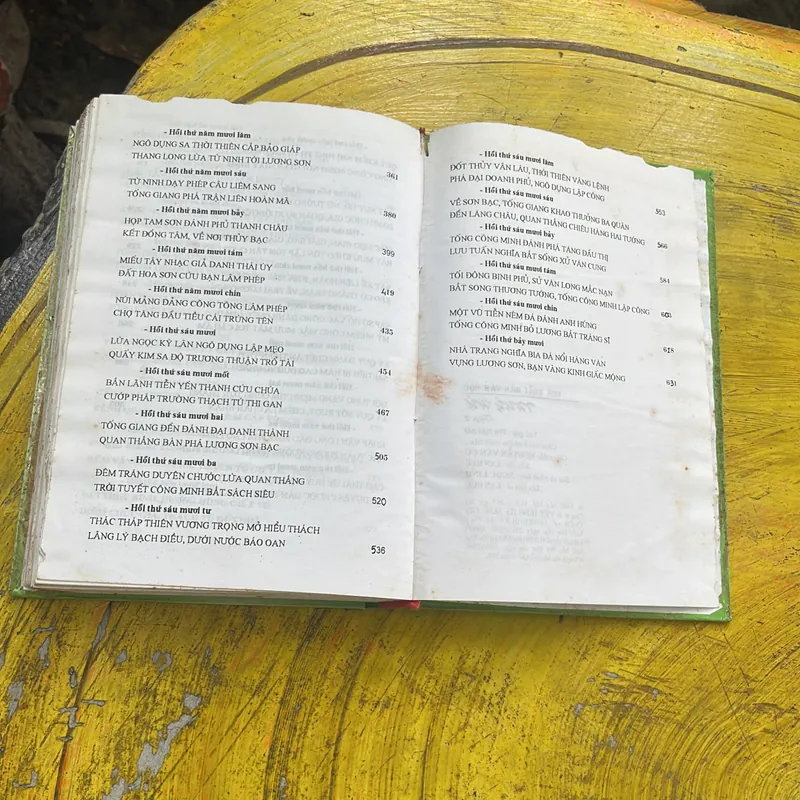 - Hồi thứ năm mươi lăm
NGÔ DỤNG SA THỜI THIÊN CẮP BẢO GIÁP
THANG LONG LỪA TỪ NINH TỚI LƯƠNG SƠN
361
- Hồi thứ năm mươi sáu
TỪ NINH DẠY PHÉP CÂU LIÊM SANG
TỐNG GIANG PHÁ TRẬN LIÊN HOÀN MÃ
380
- Hồi thứ năm mươi bảy
HỌP TAM SƠN ĐÁNH PHỦ THANH CHÂU
KẾT ĐỒNG TÂM, VỀ NƠI THỦY BẠC
399
- Hồi thứ năm mươi tám
MIẾU TÂY NHẠC GIẢ DANH THÁI ÚY
ĐẤT HOA SƠN CỨU BẠN LÂM PHÉP
419
- Hồi thứ năm mươi chín
NÚI MÃNG ĐÃNG CÔNG TÔNG LÀM PHÉP
CHỢ TĂNG ĐẦU TIỀU CÁI TRÚNG TÊN
435
- Hồi thứ sáu mươi
LỪA NGỌC KỲ LÂN NGÔ DỤNG LẬP MẸO
QUẤY KIM SA ĐỘ TRƯƠNG THUẬN TRỔ TÀI
454
- Hồi thứ sáu mươi mốt
BẮN LÃNH TIỄN YẾN THANH CỨU CHÚA
CƯỚP PHÁP TRƯỜNG THẠCH TÚ THI GAN
467
- Hồi thứ sáu mươi hai
TỐNG GIANG ĐẾN ĐÁNH ĐẠI DANH THÀNH
QUAN THẮNG BÀN PHÁ LƯƠNG SƠN BẠC
505
- Hồi thứ sáu mươi ba
ĐÊM TRĂNG DUYÊN CHƯỚC LỪA QUAN THẮNG
TRỜI TUYẾT CÔNG MINH BẮT SÁCH SIÊU
520
- Hồi thứ sáu mươi tư
THÁC THÁP THIÊN VƯƠNG TRỌNG MỞ HIẾU THÁCH
LÃNG LÝ BẠCH ĐIỀU, DƯỚI NƯỚC BÁO OAN
536
- Hồi thứ sáu mươi lăm
ĐỐT THÚY VÂN LÂU, THỜI THIÊN VÂNG LỆNH
PHÁ ĐẠI DOANH PHỦ, NGÔ DỤNG LẬP CÔNG
553
- Hồi thứ sáu mươi sáu
VỀ SƠN BẠC, TỐNG GIANG KHAO THƯỞNG BA QUÂN
ĐẾN LĂNG CHÂU, QUAN THẮNG CHIÊU HÀNG HAI TƯỚNG
566
- Hồi thứ sáu mươi bảy
TỐNG CÔNG MINH ĐÁNH PHÁ TĂNG ĐẦU THỊ
LƯU TUẤN NGHĨA BẮT SỐNG XỬ VĂN CUNG
584
- Hồi thứ sáu mươi tám
TỚI ĐÔNG BINH PHỦ, SỬ VÂN LONG MẮC NẠN
BẮT SONG THƯƠNG TƯỚNG, TỐNG CÔNG MINH LẬP CÔNG
603
- Hồi thứ sáu mươi chín
MỘT VŨ TIỄN NÉM ĐÁ ĐÁNH ANH HÙNG
TỐNG CÔNG MINH BỎ LƯƠNG BẮT TRÁNG SĨ
618
- Hồi thứ bảy mươi
NHÀ TRANG NGHĨA BIA ĐÁ NỔI HÀNG VĂN
VỤNG LƯƠNG SƠN, BẠN VÀNG KINH GIẤC MỘNG
631